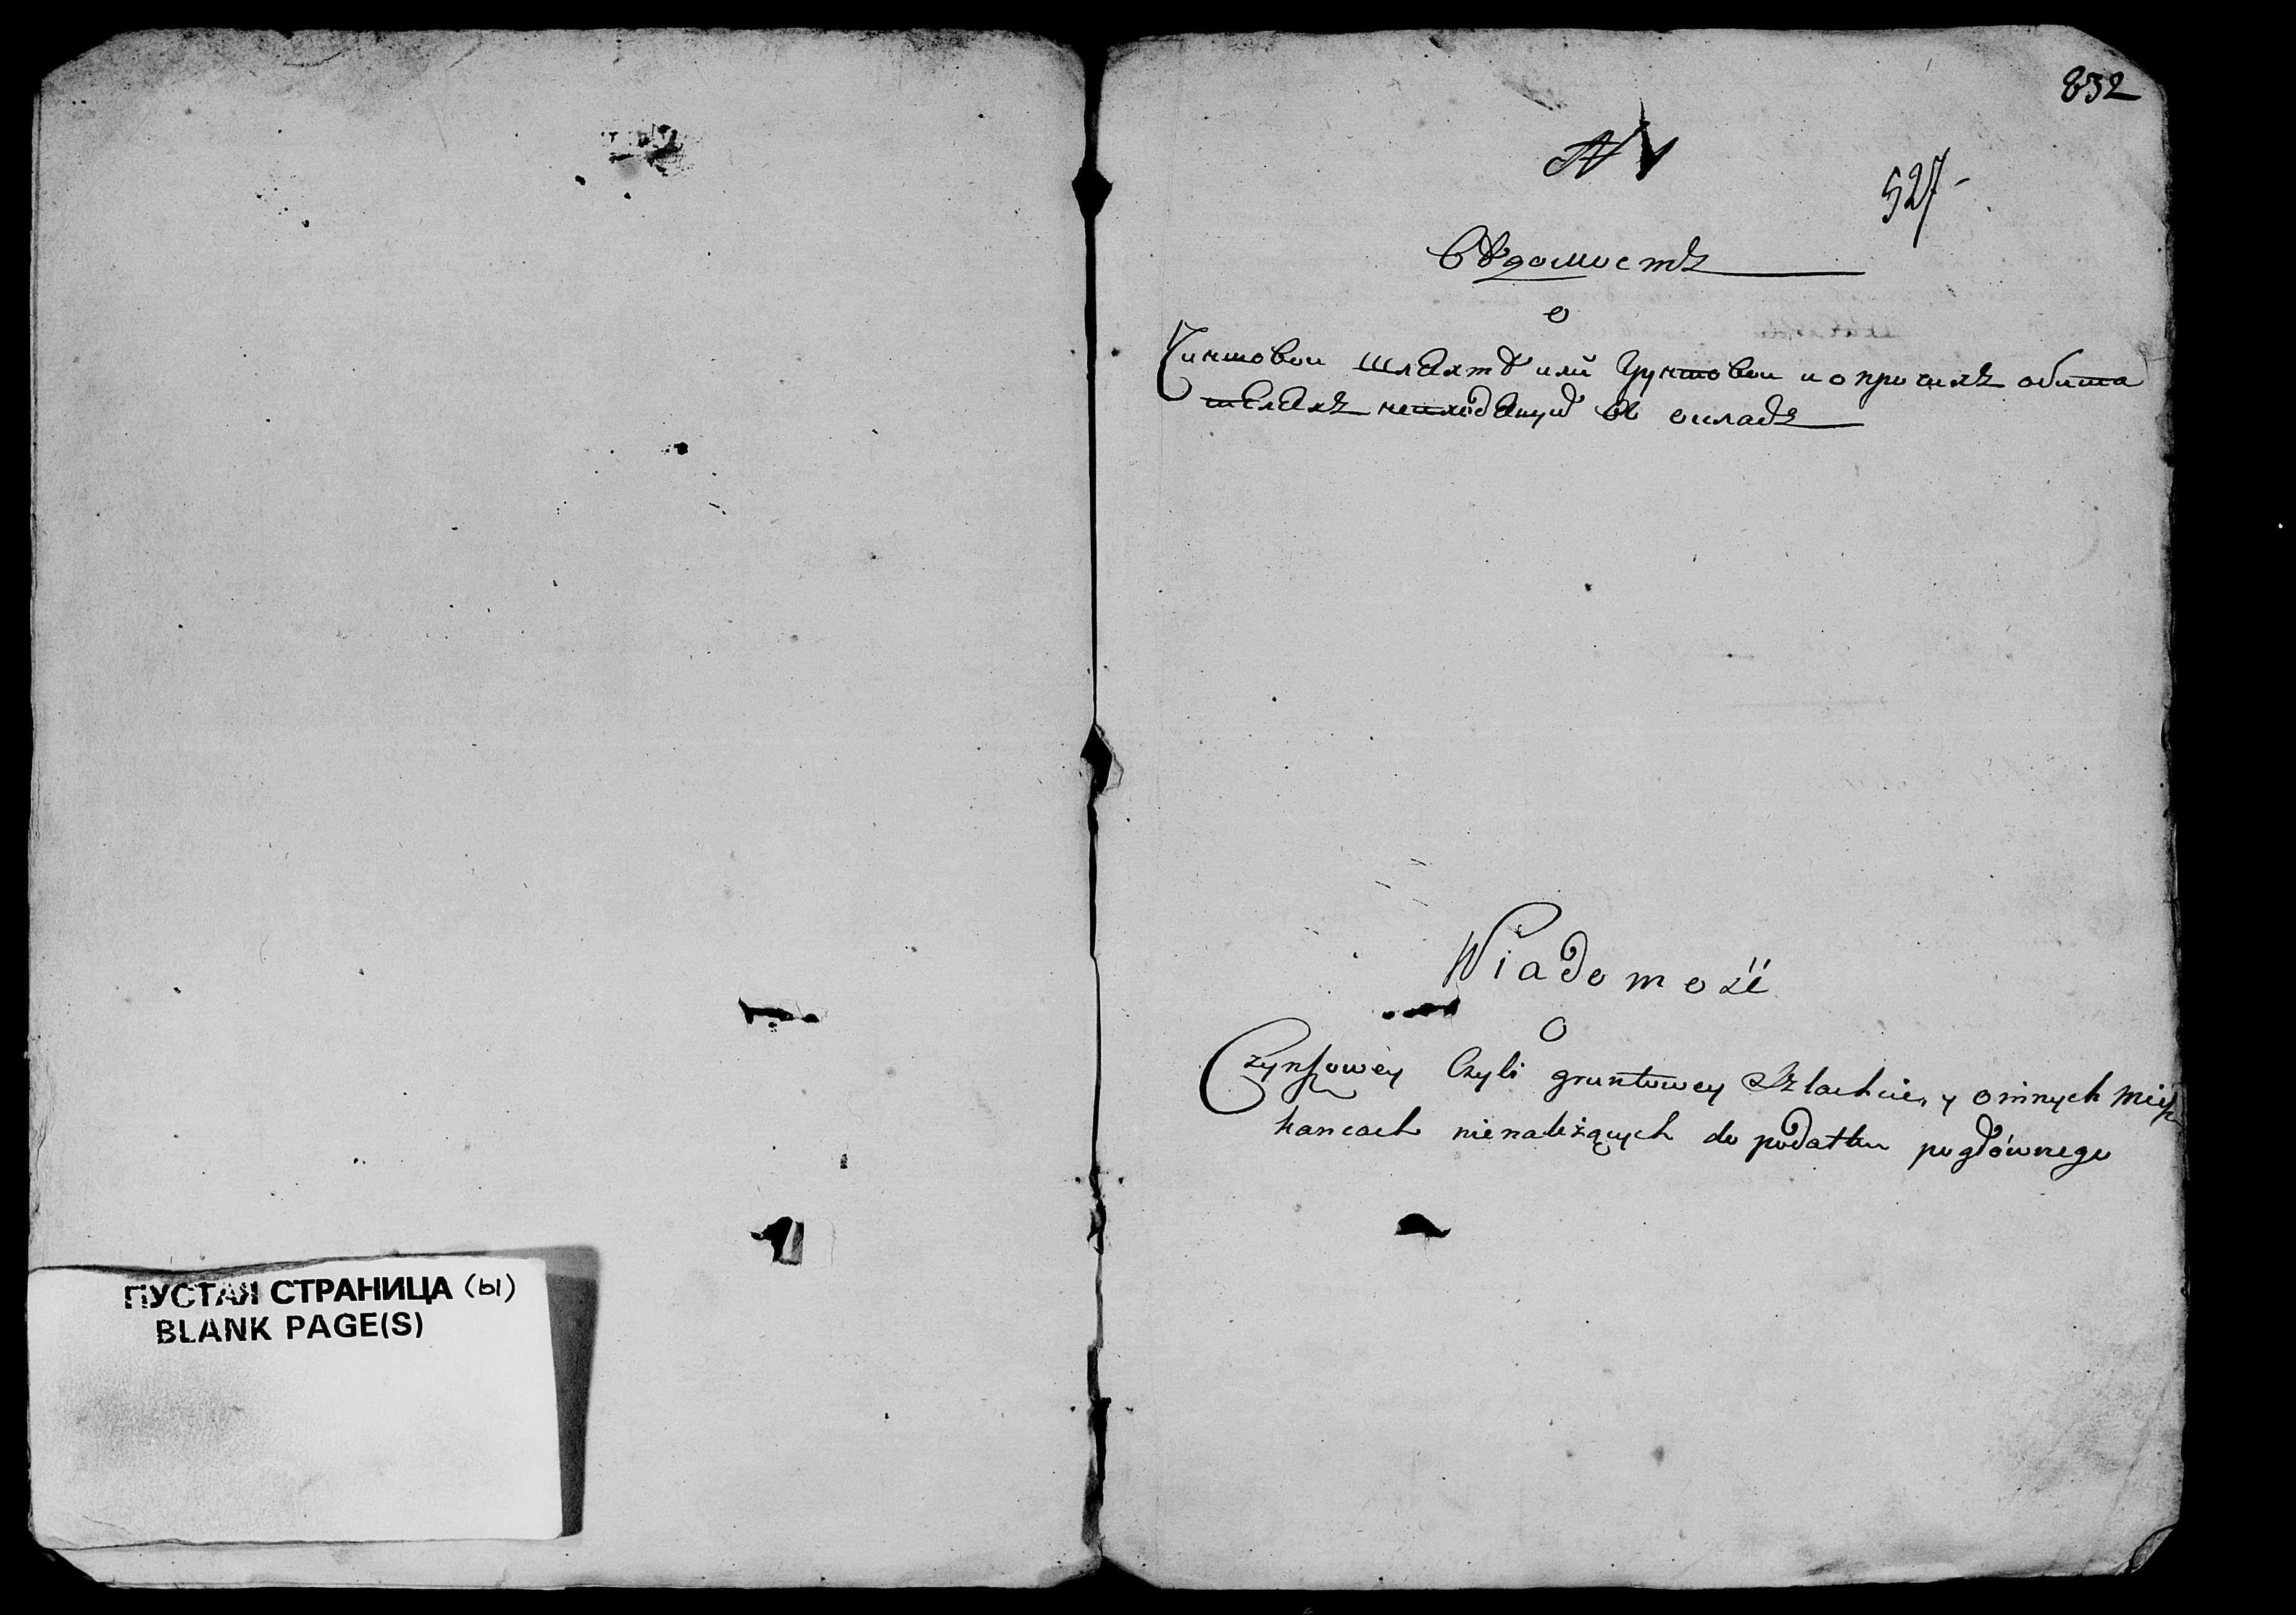 ПУСТАЯ СТРАНИЦА (ы)
BLANK PAGE(S)
832
527
Вѣдомость
о
Чиншовои шляхтѣ или Грунтовои и о прочихъ обита
теляхъ в окладъ
Wiadomość
O
Czynszowey Czyli gruntowey Szlachcie, y o innych Miesz
kancach nienależących do podatku pogłównego